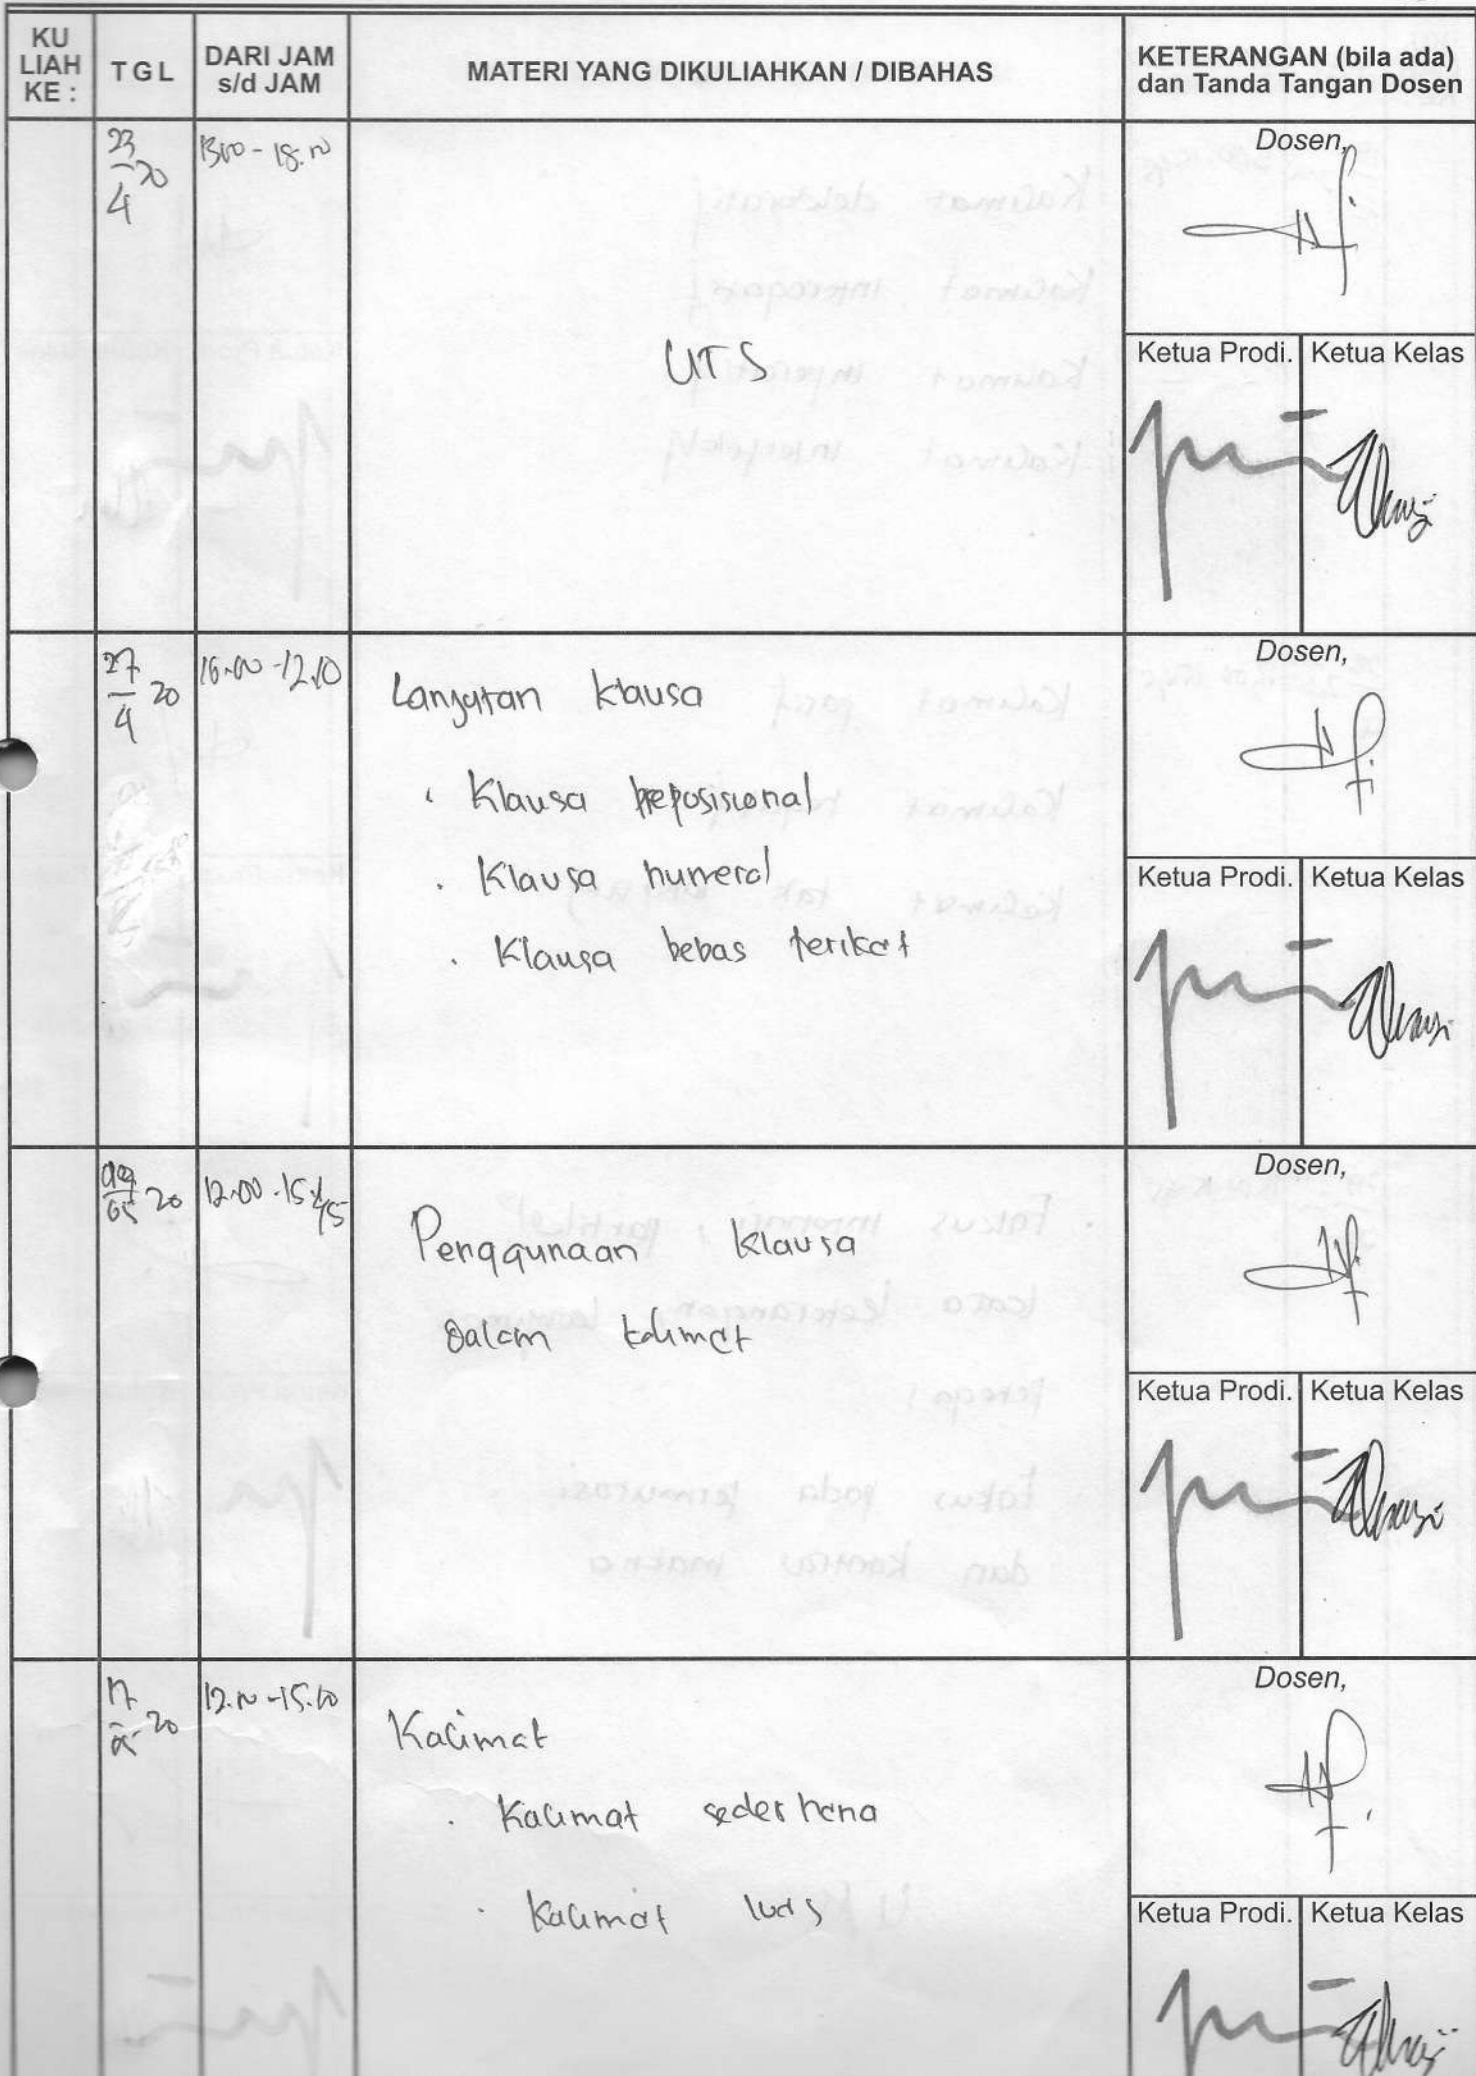 KU LIAH KE :
TGL
DARI JAM s/d JAM
MATERI YANG DIKULIAHKAN / DIBAHAS
KETERANGAN (bila ada) dan Tanda Tangan Dosen
23/4 20
UTS
Dosen,
Ketua Prodi.
Ketua Kelas
27/4 20
Lanjutan klausa
. Klausa preposisional
. Klausa numeral
. Klausa bebas terikat
Dosen,
Ketua Prodi.
Ketua Kelas
20
12.00 - 15.45
Penggunaan klausa
dalam kalimat
Dosen,
Ketua Prodi.
Ketua Kelas
20
Kalimat
. Kalimat sederhana
. Kalimat luas
Dosen,
Ketua Prodi.
Ketua Kelas